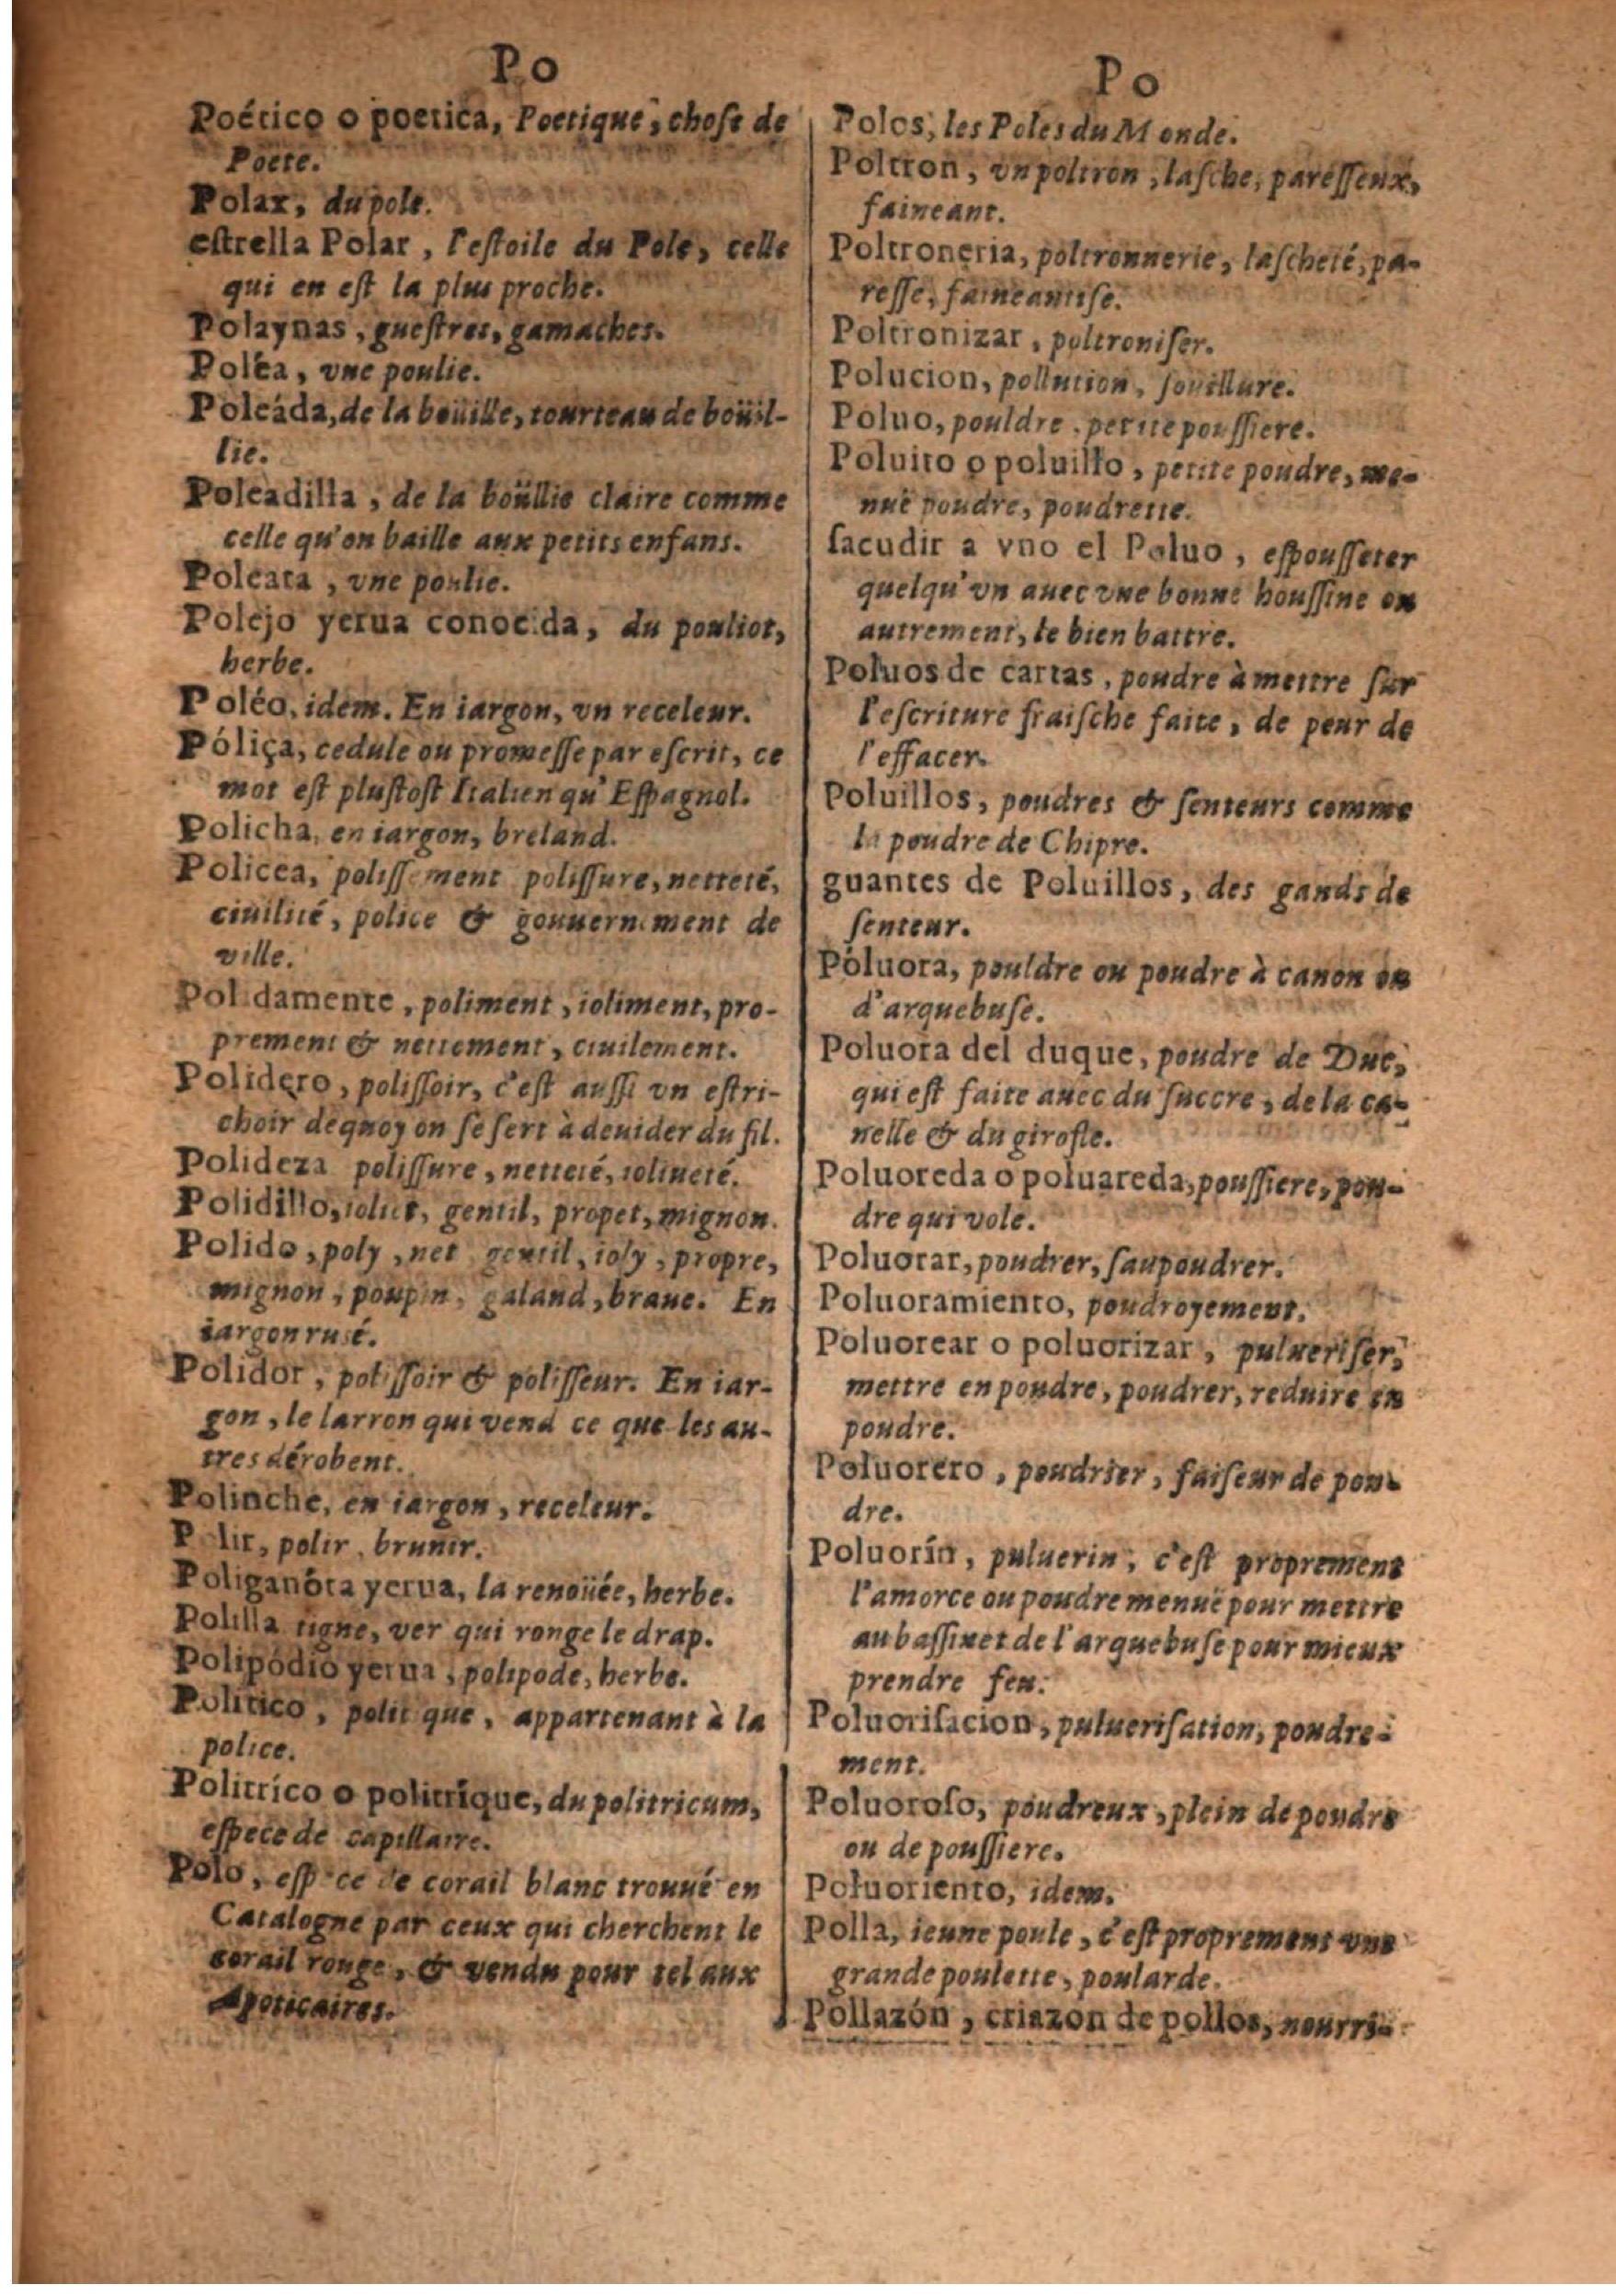 Po
Poético o poetica, Poetique, choſe de
Poëte.
Polar, du pole.
eſtrella Polar, l'eſtoile du Pole, celle
qui en eſt la plus proche.
Polaynas, gueſtres, gamaches.
Poléa, vne poulie.
Poleáda, de la boüille, tourteau de boüil-
lie.
Poleadilla, de la boüllie claire comme
celle qu'on baille aux petits enfans.
Poleata, vne poulie.
Polejo yerua conocida, du pouliot,
herbe.
Poléo, idem. En iargon, vn receleur.
Póliça, cedule ou promeſſe par eſcrit, ce
mot eſt pluſtoſt Italien qu'Eſpagnol.
Policha, en iargon, breland.
Policea, poliſſement poliſſure, netteté,
ciuilité, police & gouuernement de
ville.
Polidamente, poliment, ioliment, pro-
prement & nettement, ciuilement.
Polidero, poliſſoir, c'eſt auſſi vn eſtri-
choir dequoy on ſe ſert à deuider du fil.
Polideza poliſſure, netteté, ioliueté.
Polidillo, ioliet, gentil, propet, mignon.
Polido, poly, net gentil, ioly, propre,
mignon, poupin, galand, braue. En
iargon ruſé.
Polidor, poliſſoir & poliſſeur. En iar-
gon, le larron qui vend ce que les au-
tres dérobent.
Polinche, en iargon, receleur.
Polir, polir, brunir.
Poliganóta yerua, la renoüée, herbe.
Polilla tigne, ver qui ronge le drap.
Polipódio yerua, polipode, herbe.
Politico, politique, appartenant à la
police.
Politríco o politríque, du politricum,
eſpece de capillaire.
Polo, eſpece de corail blanc trouué en
Catalogne par ceux qui cherchent le
corail rouge, & vendu pour tel aux
Apoticaires.
Po
Polos, les Poles du Monde.
Poltron, vn poltron, laſche, pareſſeux,
faineant.
Poltroneria, poltronnerie, laſcheté, pa-
reſſe, faineantiſe.
Poltronizar, poltroniſer.
Polucion, pollution, ſouillure.
Poluo, pouldre, petite pouſſiere.
Poluito o poluillo, petite poudre, me-
nuë poudre, poudrette.
ſacudir a vno el Poluo, eſpouſſeter
quelqu'vn auec vne bonne houſſine ou
autrement, le bien battre.
Poluos de cartas, poudre à mettre ſur
l'eſcriture fraiſche faite, de peur de
l'effacer.
Poluillos, poudres & ſenteurs comme
la poudre de Chipre.
guantes de Poluillos, des gands de
ſenteur.
Póluora, pouldre ou poudre à canon ou
d'arquebuſe.
Poluora del duque, poudre de Duc,
qui eſt faite auec du ſuccre, de la ca-
nelle & du girofle.
Poluoreda o poluareda, pouſſiere, pou-
dre qui vole.
Poluorar, poudrer, ſaupoudrer.
Poluoramiento, poudroyement.
Poluorear o poluorizar, pulueriſer,
mettre en poudre, poudrer, reduire en
poudre.
Poluorero, poudrier, faiſeur de pou-
dre.
Poluorín, puluerin, c'eſt proprement
l'amorce ou poudre menuë pour mettre
au baſſinet de l'arquebuſe pour mieux
prendre feu.
Poluoriſacion, pulueriſation, poudre-
ment.
Poluoroſo, poudreux, plein de poudre
ou de pouſſiere.
Poluoriento, idem.
Polla, ieune poule, c'eſt proprement vne
grande poulette, poularde.
Pollazón, criazon de pollos, nourri-